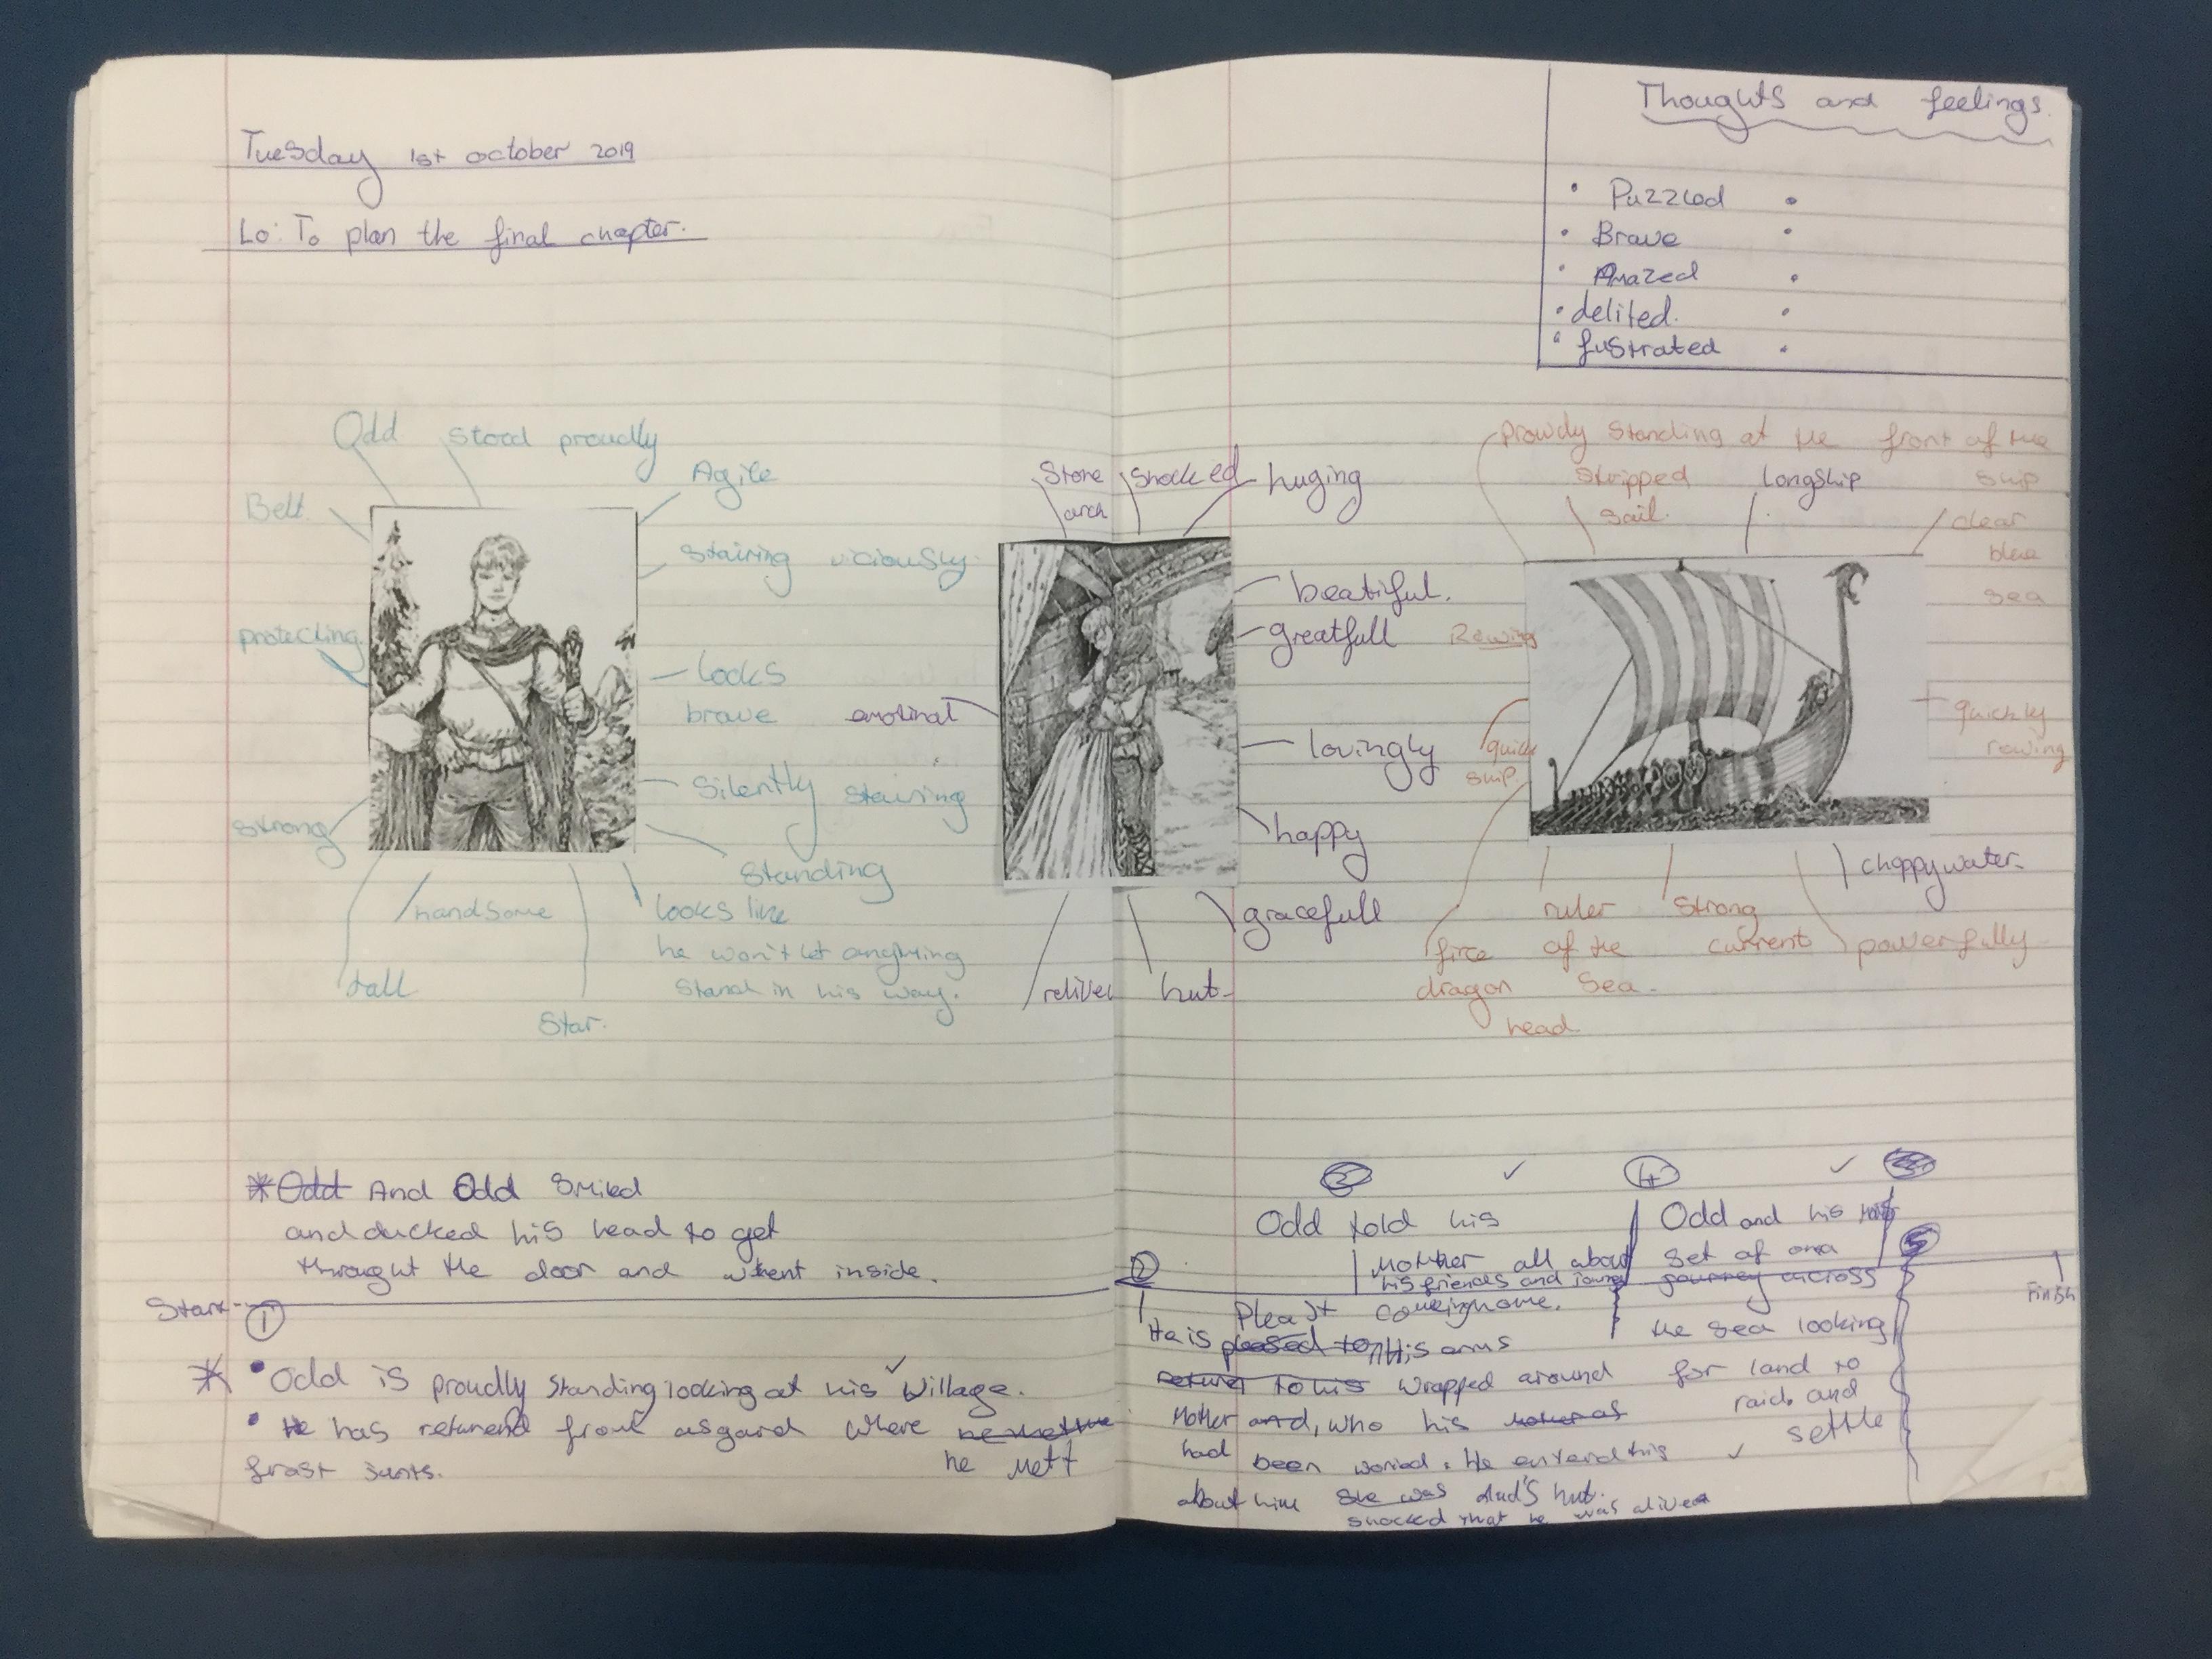 Tuesday 1st october 2019
Lo: To plan the final chapter.
Odd
Stood proudly
Agile
Belt
Stairing viciously.
protecting
Looks
brave
Silently stairing
strong
Standing
handsome
looks like
he won't let anything
stand in his way.
tall
Star.
Stone
arch
Shocked
huging
beatiful.
greatfull
emotinal
lovingly
happy
gracefull
hut
Thoughts and feelings.
• Puzzled •
• Brave •
• Amazed •
• delited. •
• fustrated •
Prowdy standing at the front of the
ship
stripped
sail.
longship
clear
blue
sea
Rowing
quick
ship.
quickly
rowing
choppy water.
ruler
of the
sea.
strong
current
powerfully
firce
dragon
head
* Odd And Odd smiled
and ducked his head to get
throught the door and whent inside.
Start
1
* • Odd is proudly standing looking at his village.
• He has returend from asgard where
he mett
frost iants.
Odd told his
Mother all about
his friends and
comeing home.
2
He is pleased to His arms
returned to his wrapped around
Mother and, who his
had been worried. He enterd his
about him she was dad's hut.
shocked that he was alive
4
Odd and his
set of on a
journey across
the sea looking
for land to
raid and
settle
5
Finish